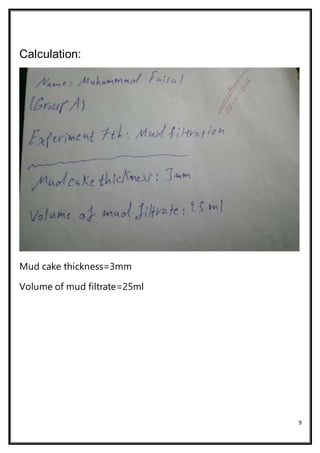 Calculation:
Name: Muhammad Faisal
(Group A)
Experiment 7th: Mud filtration
Mud cake thickness: 3mm
Volume of mud filtrate: 25ml
Mud cake thickness=3mm
Volume of mud filtrate=25ml
9